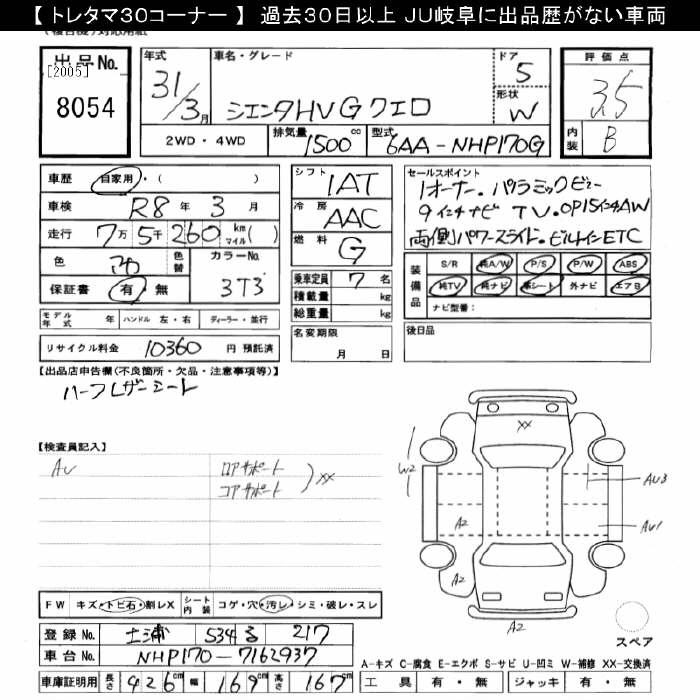 【 トレタマ30コーナー 】 過去30日以上 JU岐阜に出品歴がない車両
対応用紙
出品No.
[2005]
8054
年式
31/3月
車名・グレード
シエンタHV G クエロ
ドア
5
形状
W
評価点
3.5
内装
B
2WD・4WD
排気量
1500cc
型式
6AA-NHP170G
車歴
自家用・( )
車検
R8年 3月
走行
7万5千260 km(マイル)
色
色替
カラーNo.
3T3
保証書
有・無
モデル年式 年 ハンドル 左・右 ディーラー・並行
リサイクル料金 10360 円 預託済
シフト
1AT
冷房
AAC
燃料
G
乗車定員 7 名
積載量 kg
総重量 kg
名変期限
月 日
セールスポイント
1オーナー・パノラミックビュー
9インチナビ TV・OP15インチAW
両側パワースライド・ビルトインETC
装備品
S/R 純A/W P/S P/W ABS
純TV 純ナビ 革シート 外ナビ エアB
ナビ型番:
後日品
【出品店申告欄(不良箇所・欠品・注意事項等)】
ハーフレザーシート
【検査員記入】
AU
ロアサポート
コアサポート
XX
XX
W2
AU3
A2
AU1
A2
A2
スペア
FW キズ・トビ石・割レX シート内装 コゲ・穴・汚レ・シミ・破レ・スレ
登録No. 土浦 534 る 217
車台No. NHP170-7162937
車庫証明用 長さ 426cm 幅 169cm 高さ 167cm
A-キズ C-腐食 E-エクボ S-サビ U-凹ミ W-補修 XX-交換済
工具 有・無 ジャッキ 有・無